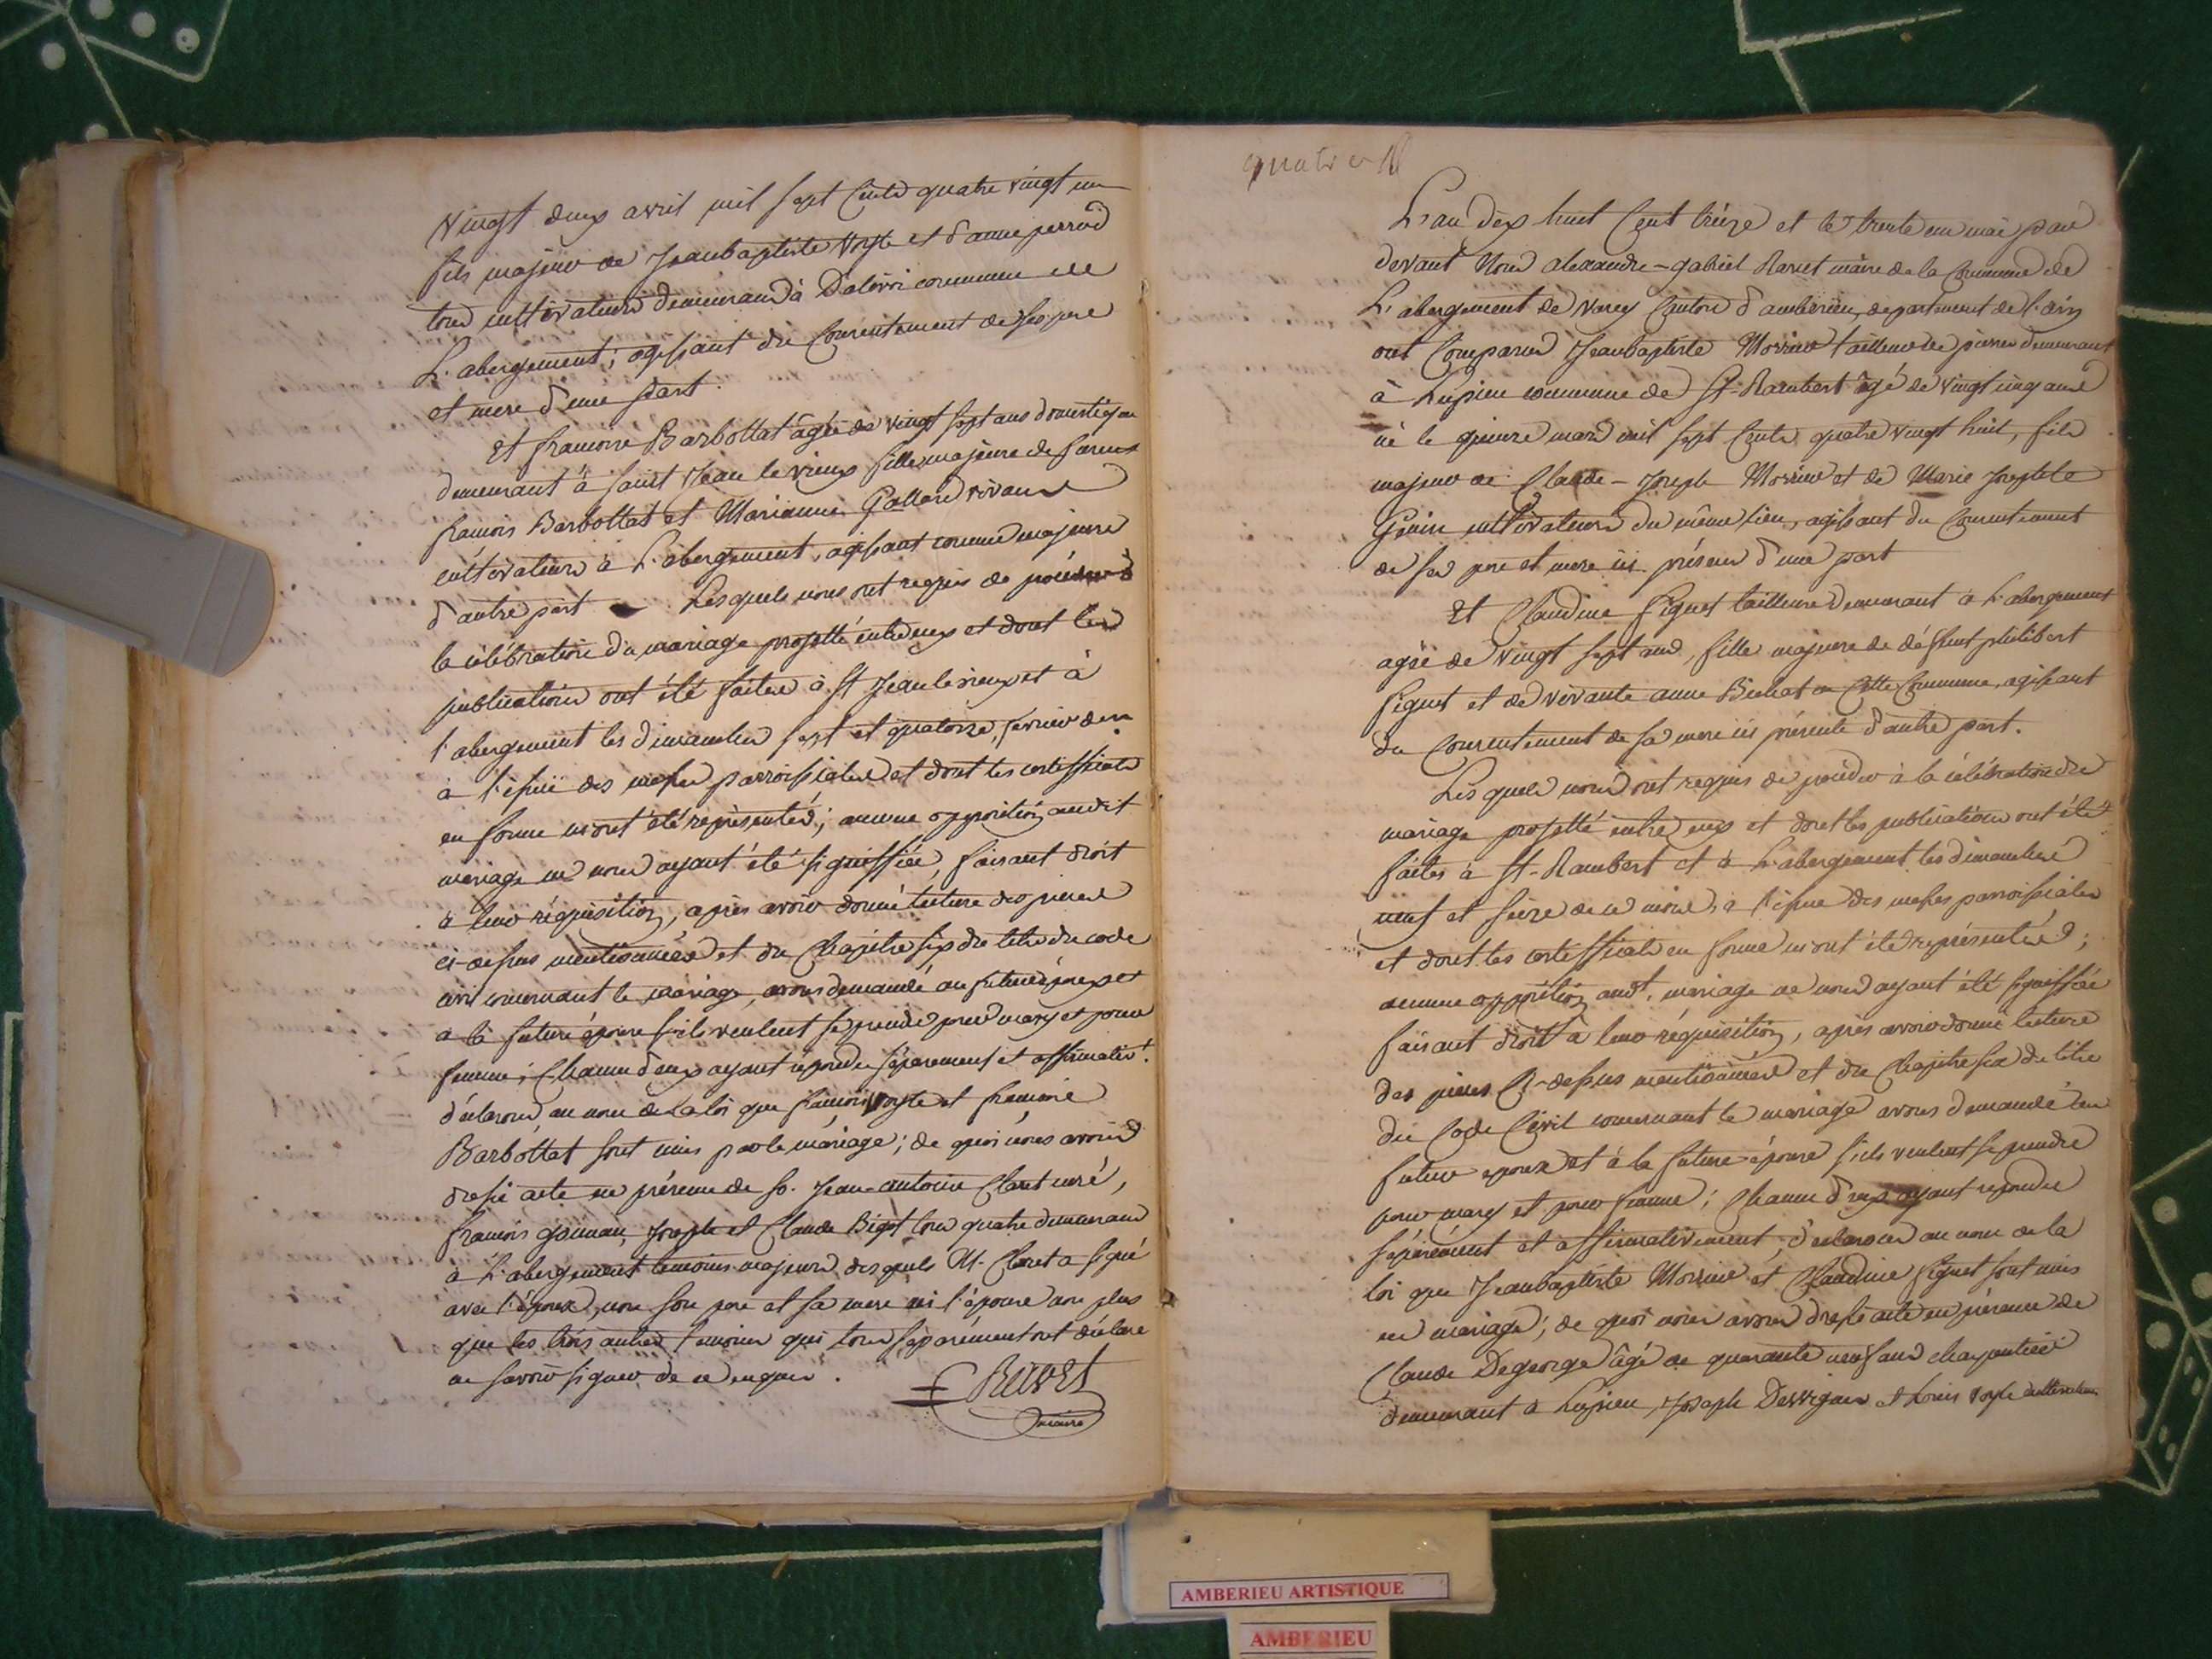 Vingt deux avril mil sept Cents quatre vingt un
fils majeur de Jeanbaptiste Voyle et d'anne perrod
tous cultivateurs demeurand à Dalivoi commune de
L'abergement; agissant du Consentement de ses pere
et mere d'une part.
Et francoise Barbollat âgée de vingt sept ans domestique
demeurant à saint Jean le vieux fille majeure de
francois Barbollat et Marianne Galland vivans
cultivateurs à L'abergement, agissant comme majeure
d'autre part Lesquels nous ont requis de proceder à
la célébration du mariage projetté entre eux et dont les
publications ont été faites à St Jean le vieux et à
l'abergement les dimanches sept et quatorze, fevrier der.
à l'issüe des messes parroissiales et dont les certifficats
en forme m'ont été représentés; aucune opposition audit
mariage ne nous ayant été signiffiée, faisant droit
à leur réquisition, après avoir donné lecture des pieces
ci-dessus mentionnées et du Chapitre six du titre du code
civil concernant le mariage, avons demandé au futur époux et
à la future épouse s'ils veulent se prendre pour mary et pour
femme; Chacun d'eux ayant repondu séparement et affirmativt.
déclarons au nom de la loi que francois Voyle et francoise
Barbollat sont unis par le mariage; de quoi nous avons
dressé acte en présence de sr. Jean-antoine Claret curé,
francois Joseph et Claude Bigot tous quatre demeurans
à L'abergement temoins majeurs desquels M. Claret a signé
avec l'époux, non son pere et sa mere ni l'épouse non plus
que les trois autres temoins qui tous séparément ont déclaré
ne savoir signer de ce enquis.
RUVET
maire
quatre
L'an dix huit Cent treize et le trente un mai par
devant Nous alexandre-gabriel Ravet maire de la Commune de
L'abergement de Varey Canton d'amberieu, departement de l'ain
ont Comparus Jeanbaptiste tailleur de pierres demeurant
à Lupieu commune de St-Rambert âgé de vingt cinq ans
né le quinze mars mil sept Cents quatre vingt huit, fils
majeur de Claude-Joseph et de Marie Josephte
cultivateurs du même lieu, agissant du Consentement
de ses pere et mere ici présens d'une part
Et Claudine Piquet tailleuse demeurant à L'abergement
agée de vingt sept ans, fille majeure de défunt philibert
Piquet et de vivante anne Bichat en Cette Commune, agissant
du Consentement de sa mere ici présente d'autre part.
Lesquels nous ont requis de proceder à la célébration du
mariage projetté entre eux et dont les publications ont été
faites à St-Rambert et à L'abergement les dimanches
neuf et seize de ce mois, à l'issue des messes parroissiales
et dont les certifficats en forme m'ont été représentés;
aucune opposition audt. mariage ne nous ayant été signiffiée
faisant droit à leur réquisition, après avoir donné lecture
des pieces Ci-dessus mentionnées et du Chapitre six du titre
du Code Civil concernant le mariage avons demandé au
futur epoux et à la future épouse s'ils veulent se prendre
pour mary et pour femme; Chacun d'eux ayant repondu
séparément et affirmativement, déclarons au nom de la
loi que Jeanbaptiste et Claudine Piquet sont unis
en mariage; de quoi nous avons dressé acte en présence de
Claude Degeorge âgé de quarante neuf ans charpentier
demeurant à Lupieu, Joseph et Louis Voyle cultivateurs
AMBERIEU ARTISTIQUE
AMBERIEU